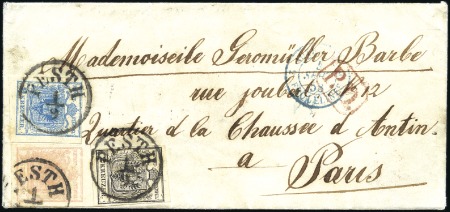 Mademoiseile Geromüller Barbe
rue joubert N° 12
Quartier d la Chaussée d'Antin.
a
Paris
PESTH
PESTH
PESTH
P.D.